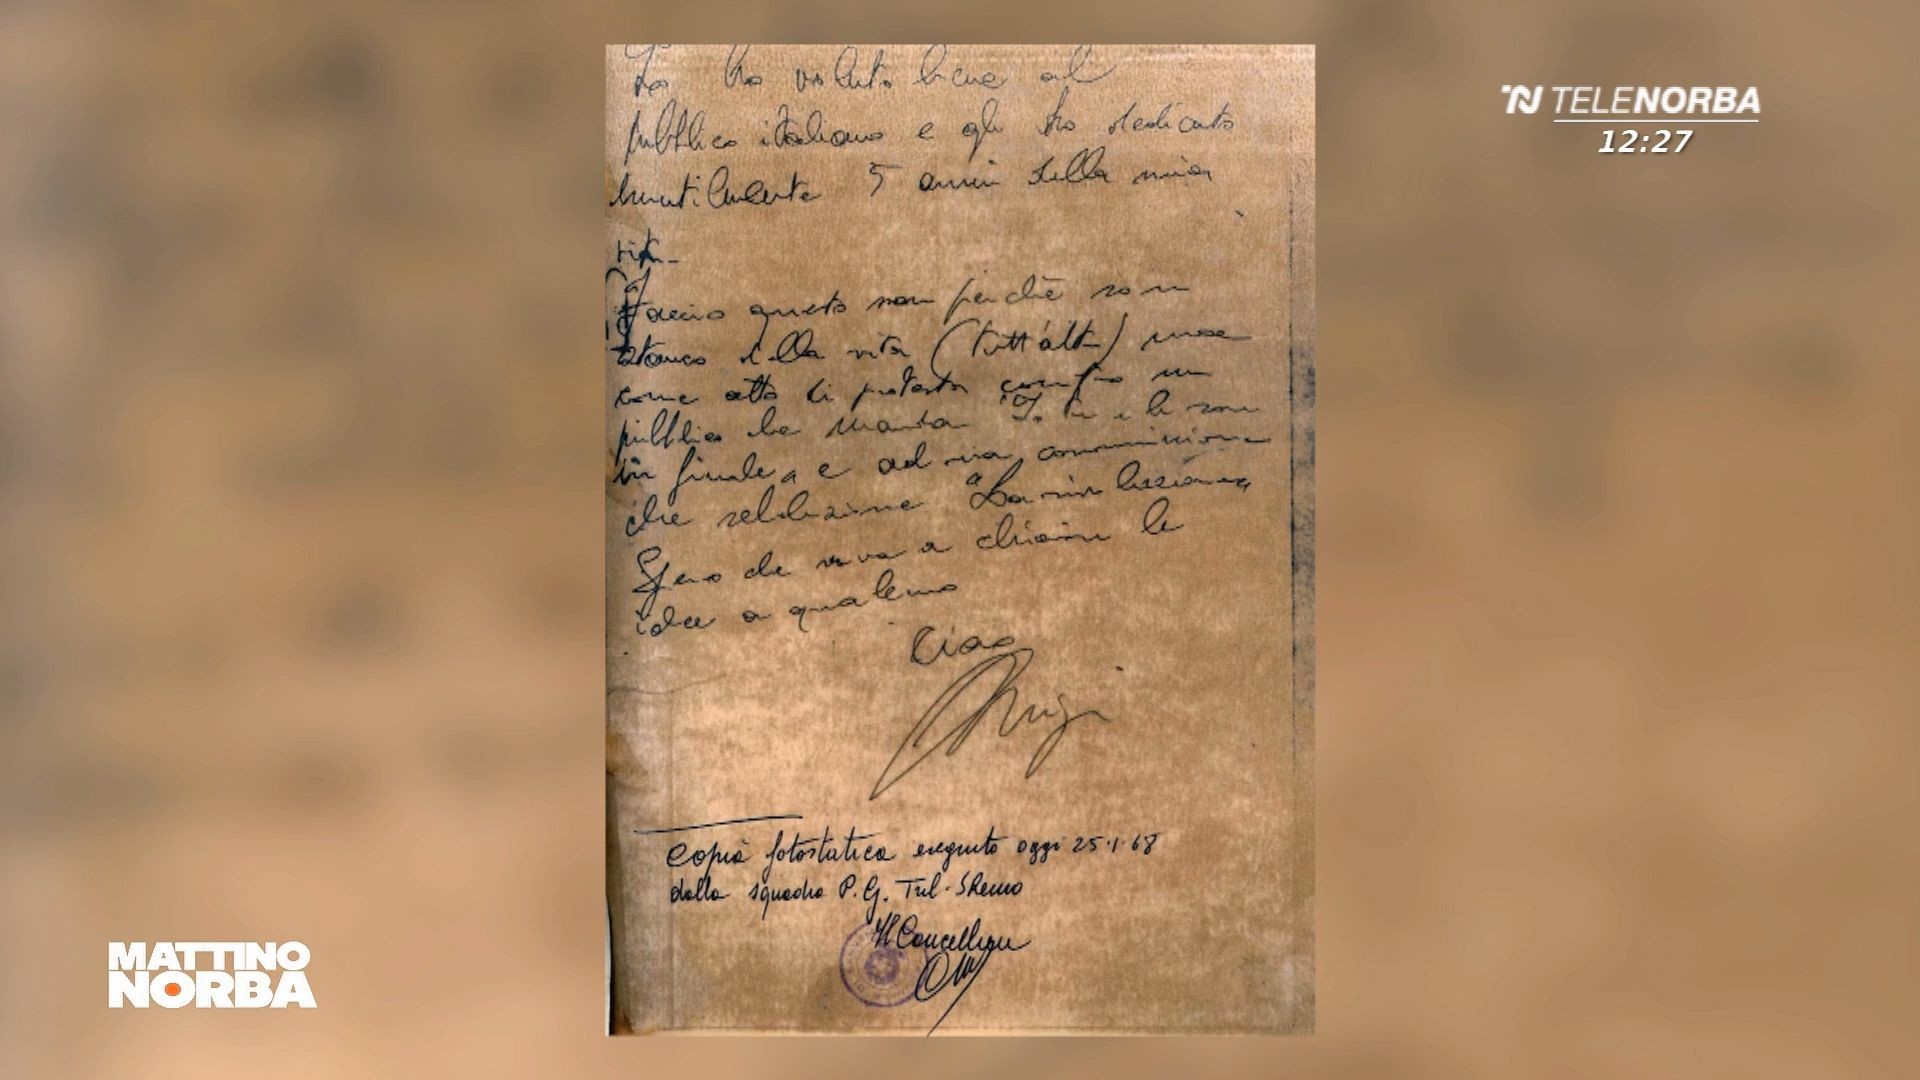 Io ho voluto bene al
pubblico italiano e gli ho dedicato
inutilmente 5 anni della mia
vita.
Faccio questo non perché sono
stanco della vita (tutt'altro) ma
come atto di protesta contro un
pubblico che manda "Io tu e le rose
in finale" e ad una commissione
che seleziona "La rivoluzione"
Spero che serva a chiarire le
idee a qualcuno
Ciao
Luigi
Copia fotostatica eseguita oggi 25.1.68
dalla squadra P.G. Trib. SRemo
Il Cancelliere
TELENORBA
12:27
MATTINO
NORBA